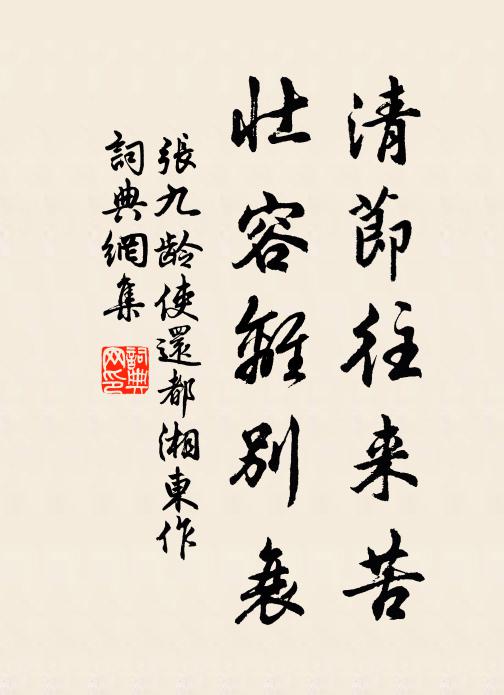 清節往来苦
壮容離別衰
張九齡使還都湘東作
詞典網集
詞典网印